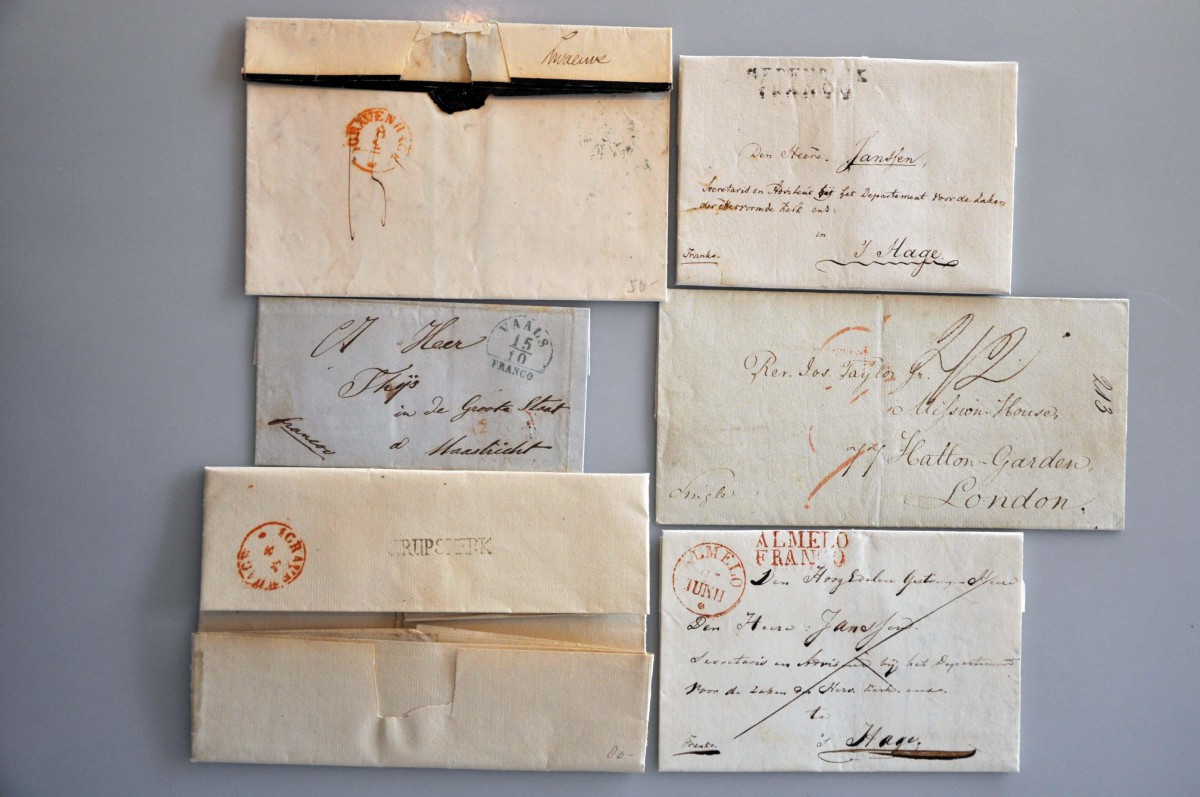 'SGRAVENHAGE
50-
Den Heere Janssen,
Secretaris en Adviseur bij het Departement voor de zaken
der Hervormde Kerk enz:
in
's Hage
Franko.
VAALS
15/10
FRANCO
Heer
Thijs
in de Groote Staat
Maastricht
francoo
2/2
213
Rev. Jos. Taylor Jr.
Mission-House,
77 Hatton-Garden,
London.
Single
GRIJPSKERK
80-
ALMELO
FRANCO
ALMELO
JUNIJ
Den Hoog Edelen Gestr. Heere
Den Heere Janssen.
Secretaris en Adviseur bij het Departement
voor de zaken der Herv. Kerk enz.
te
's Hage,
Franko